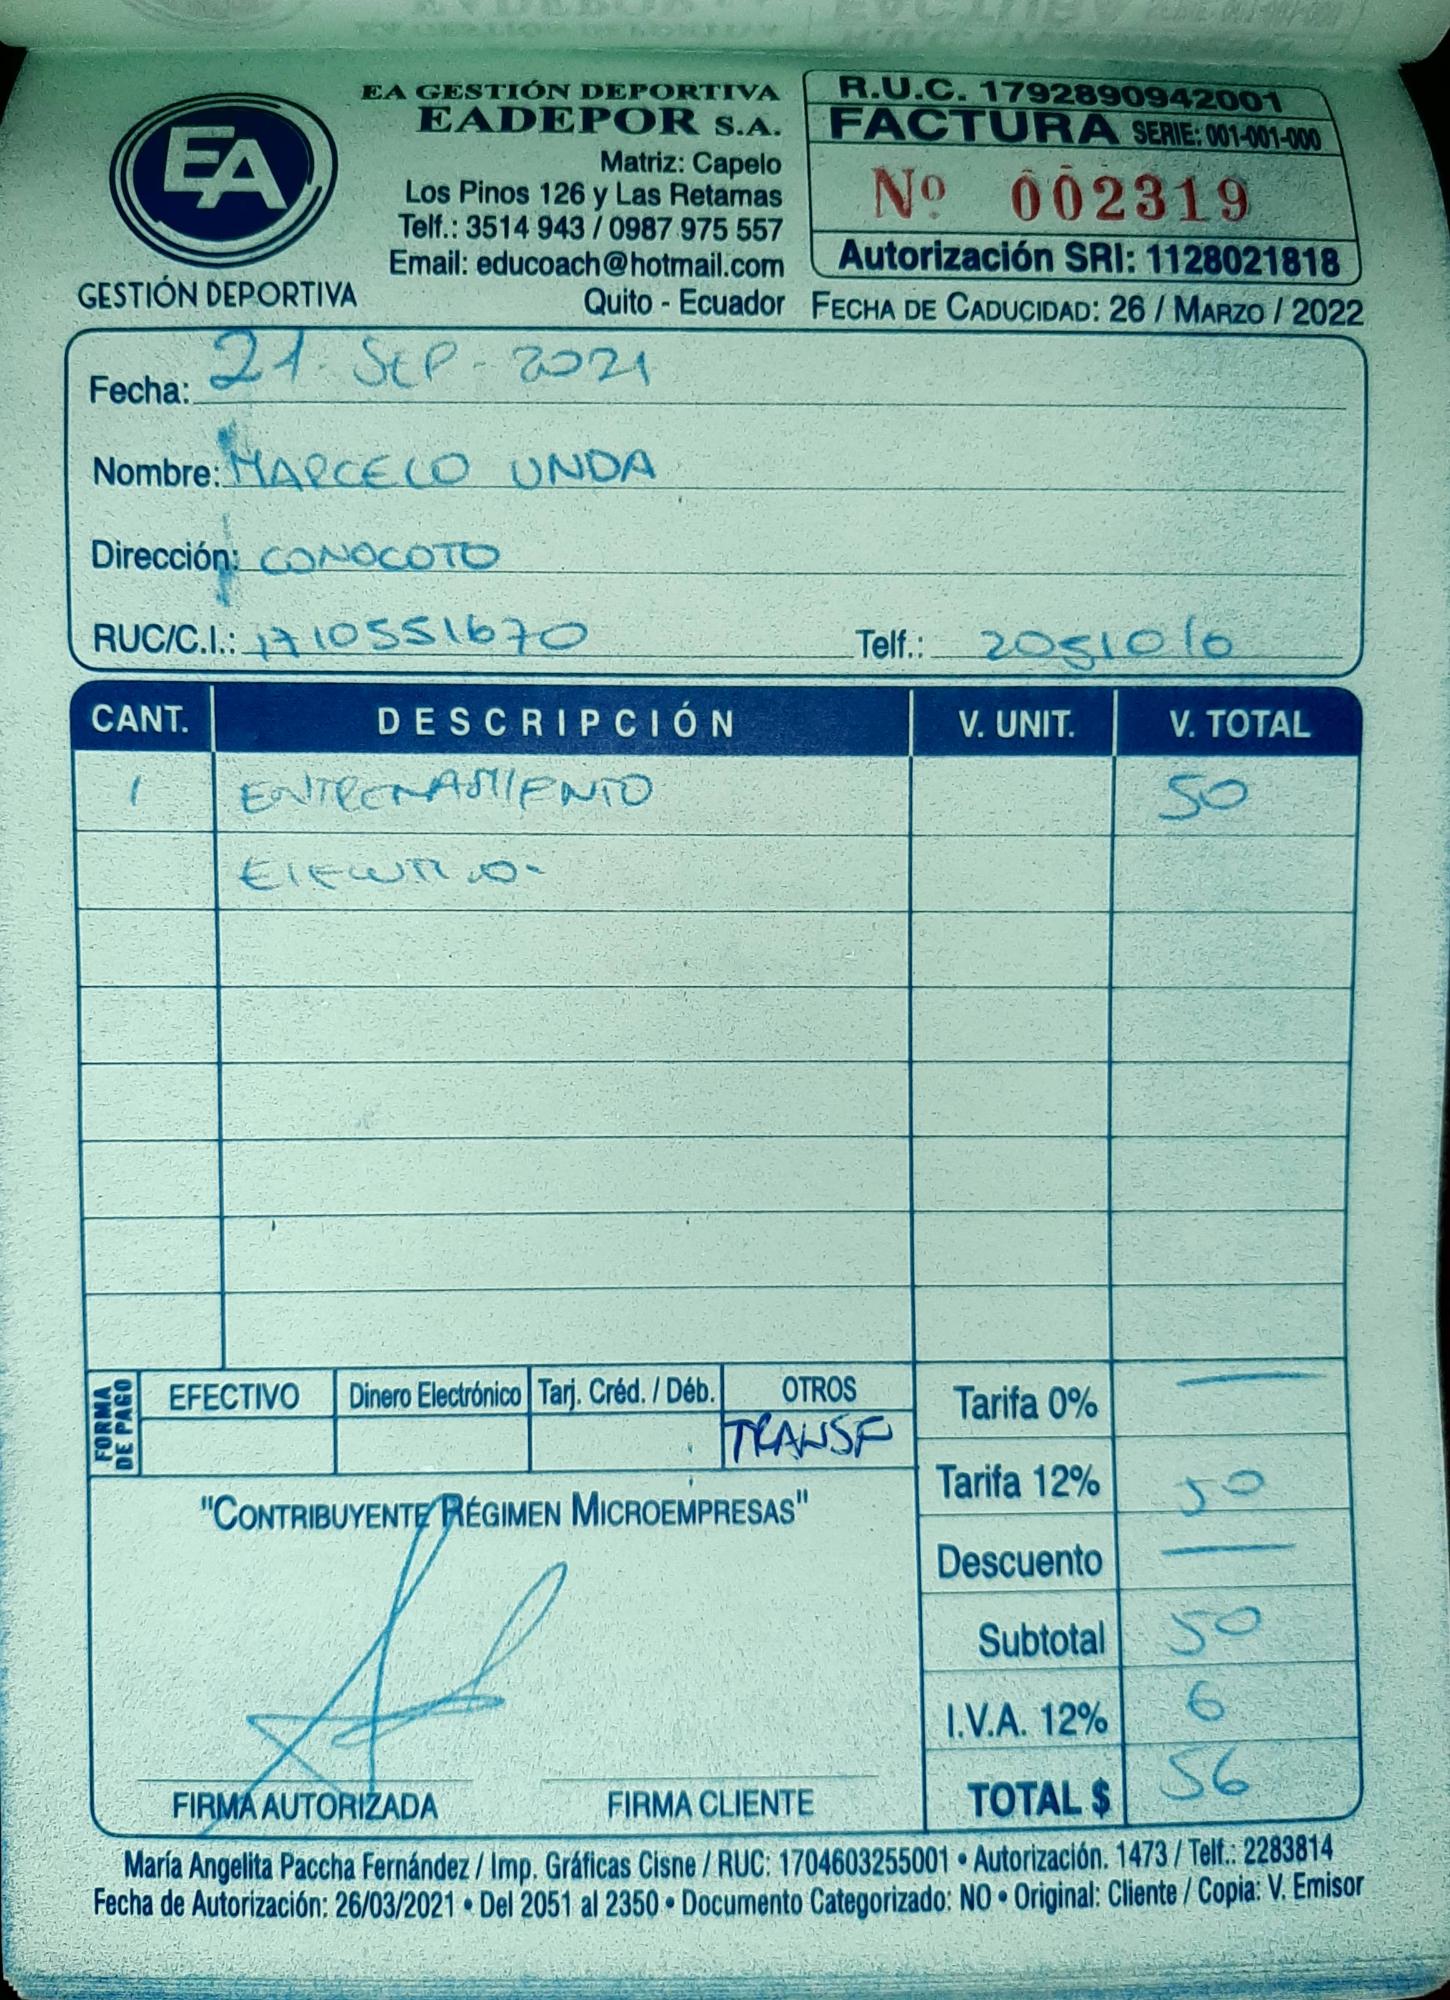 EA GESTIÓN DEPORTIVA
EADEPOR S.A.
Matriz: Capelo
Los Pinos 126 y Las Retamas
Telf.: 3514 943 / 0987 975 557
Email: educoach@hotmail.com
Quito - Ecuador
EA
GESTIÓN DEPORTIVA
R.U.C. 1792890942001
FACTURA SERIE: 001-001-000
Nº 002319
Autorización SRI: 1128021818
FECHA DE CADUCIDAD: 26 / MARZO / 2022
Fecha: 21 - SEP - 2021
Nombre: MARCELO UNDA
Dirección: CONOCOTO
RUC/C.I.: 1710551670 Telf.: 2051010
CANT. DESCRIPCIÓN V. UNIT. V. TOTAL
1 ENTRENAMIENTO 50
EJECUTIVO
FORMA DE PAGO EFECTIVO Dinero Electrónico Tarj. Créd. / Déb. OTROS
TRANSF
Tarifa 0% —
Tarifa 12% 50
Descuento —
Subtotal 50
I.V.A. 12% 6
TOTAL $ 56
"CONTRIBUYENTE RÉGIMEN MICROEMPRESAS"
FIRMA AUTORIZADA FIRMA CLIENTE
María Angelita Paccha Fernández / Imp. Gráficas Cisne / RUC: 1704603255001 • Autorización. 1473 / Telf.: 2283814
Fecha de Autorización: 26/03/2021 • Del 2051 al 2350 • Documento Categorizado: NO • Original: Cliente / Copia: V. Emisor